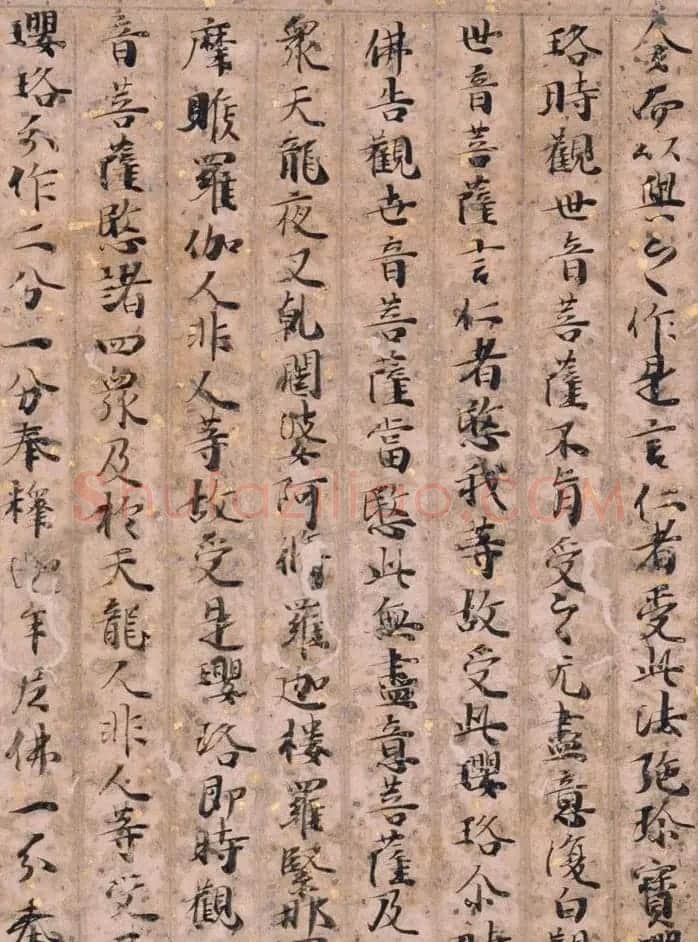 金而以與之作是言仁者受此法施珍寶瓔
珞時觀世音菩薩不肯受之无盡意復白觀
世音菩薩言仁者愍我等故受此瓔珞尒時
佛告觀世音菩薩當愍此無盡意菩薩及
衆天龍夜叉乹闥婆阿脩羅迦楼羅緊那
摩睺羅伽人非人等故受是瓔珞即時觀
音菩薩愍諸四衆及於天龍人非人等受
瓔珞分作二分一分奉釋迦牟尼佛一分奉
shufaziliao.COM